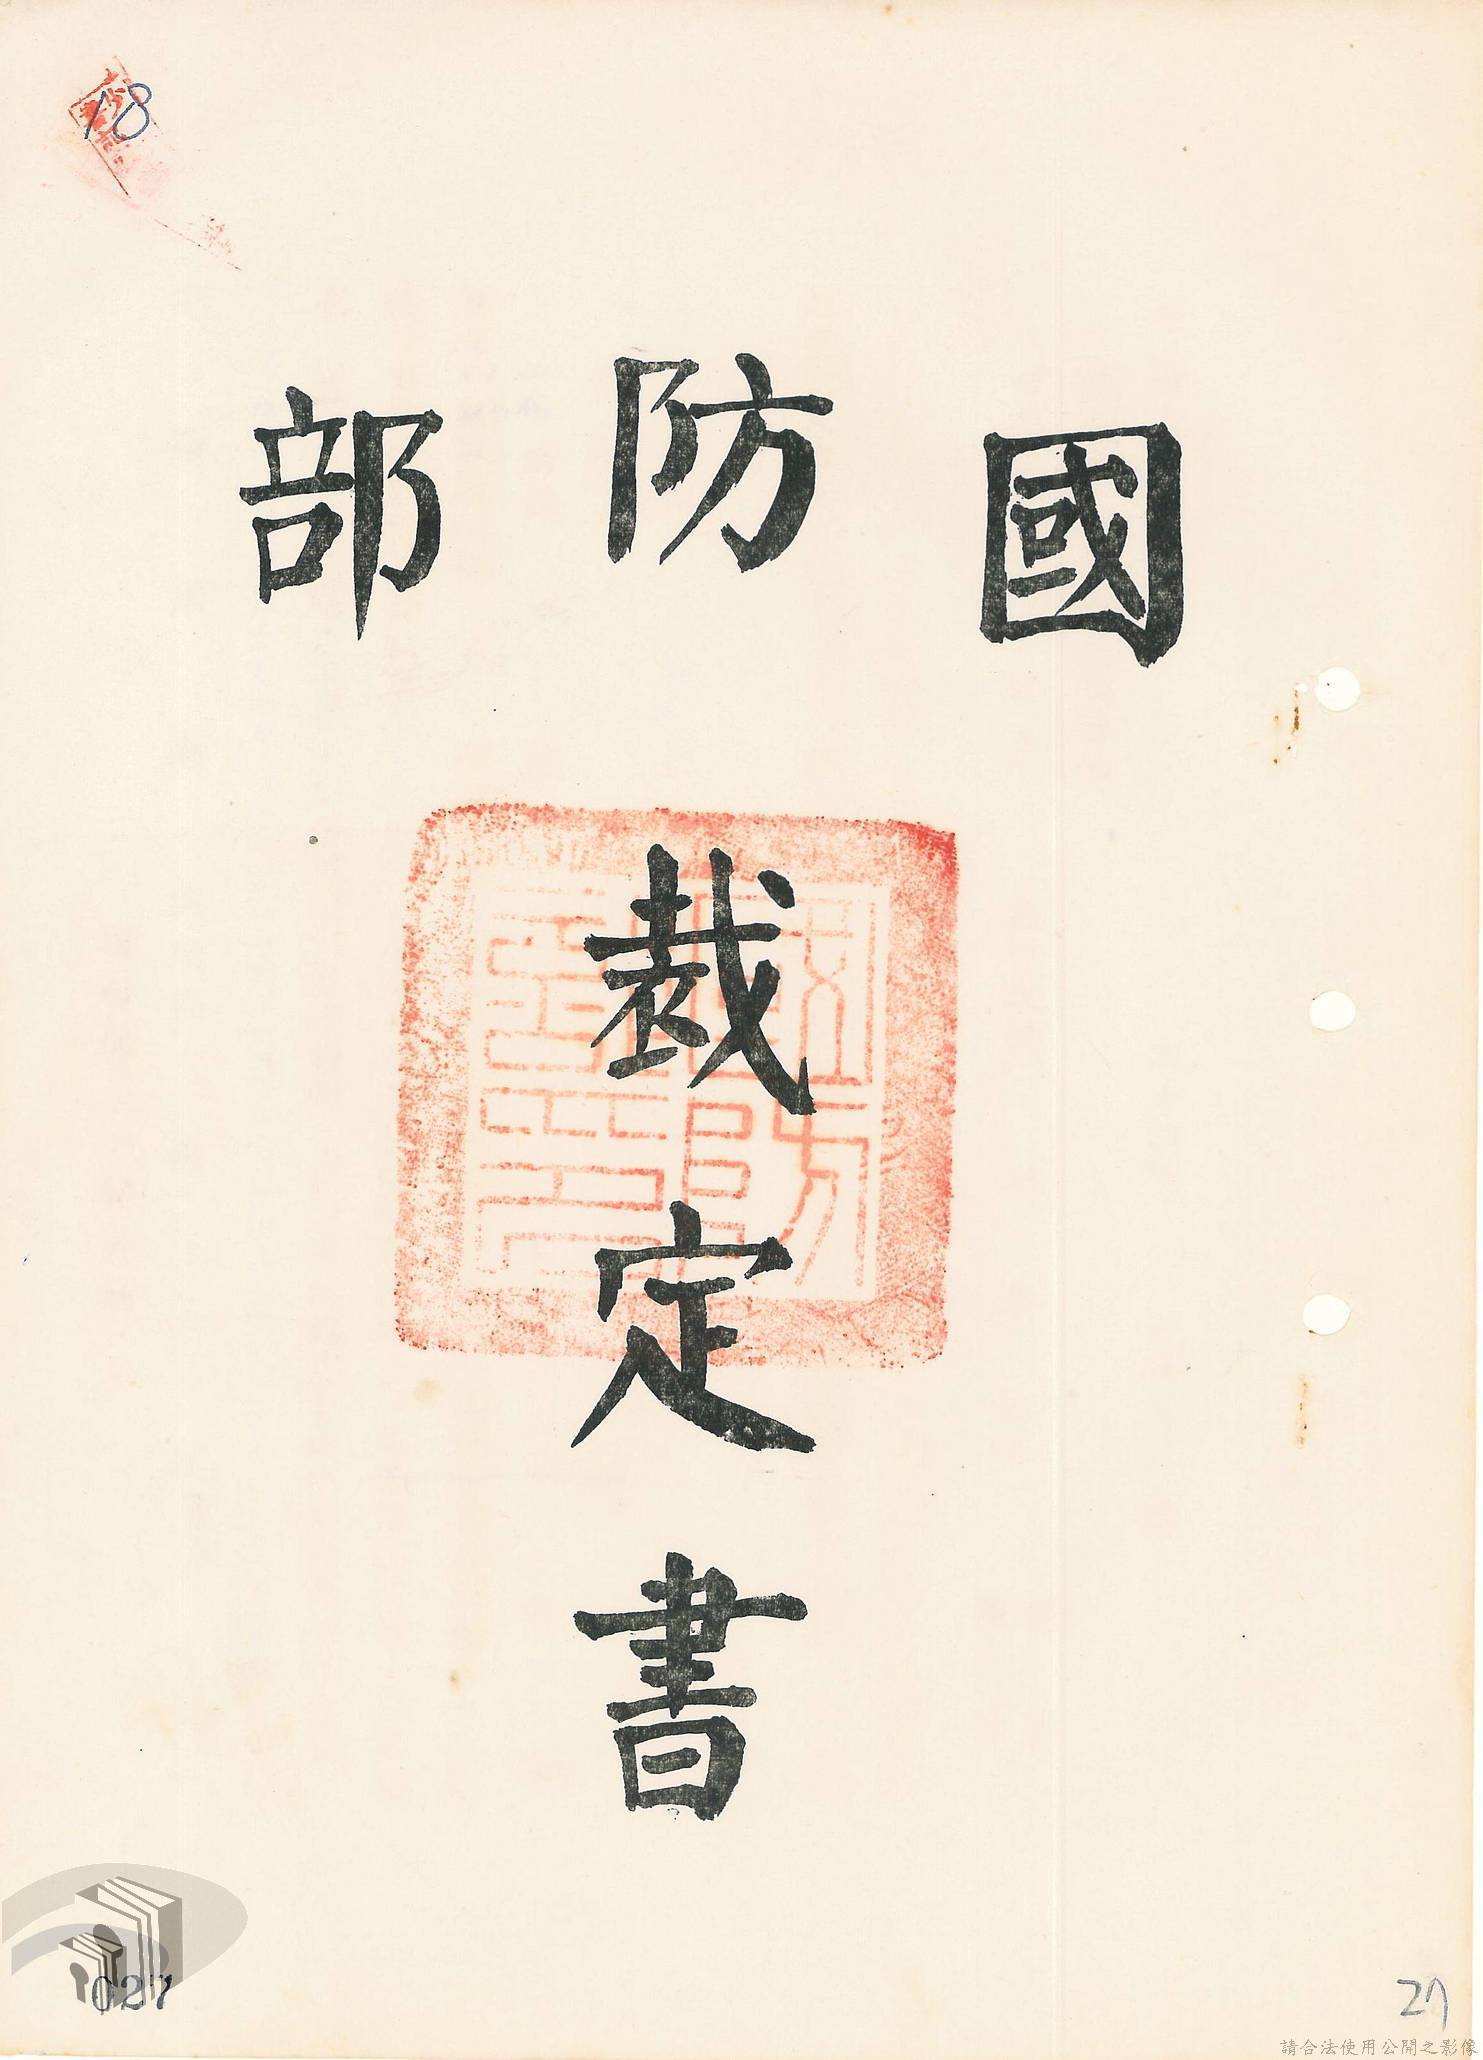 18
國防部
裁定書
027
27
請合法使用公開之影像